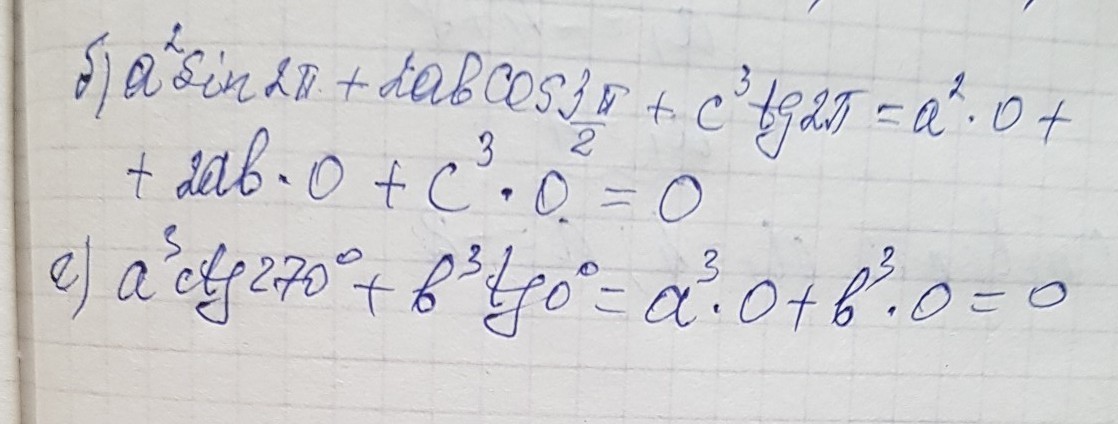 б) a² sin 2π + 2ab cos 3π/2 + c³ tg 2π = a² · 0 +
+ 2ab · 0 + c³ · 0 = 0
г) a³ ctg 270° + b³ tg 0° = a³ · 0 + b³ · 0 = 0